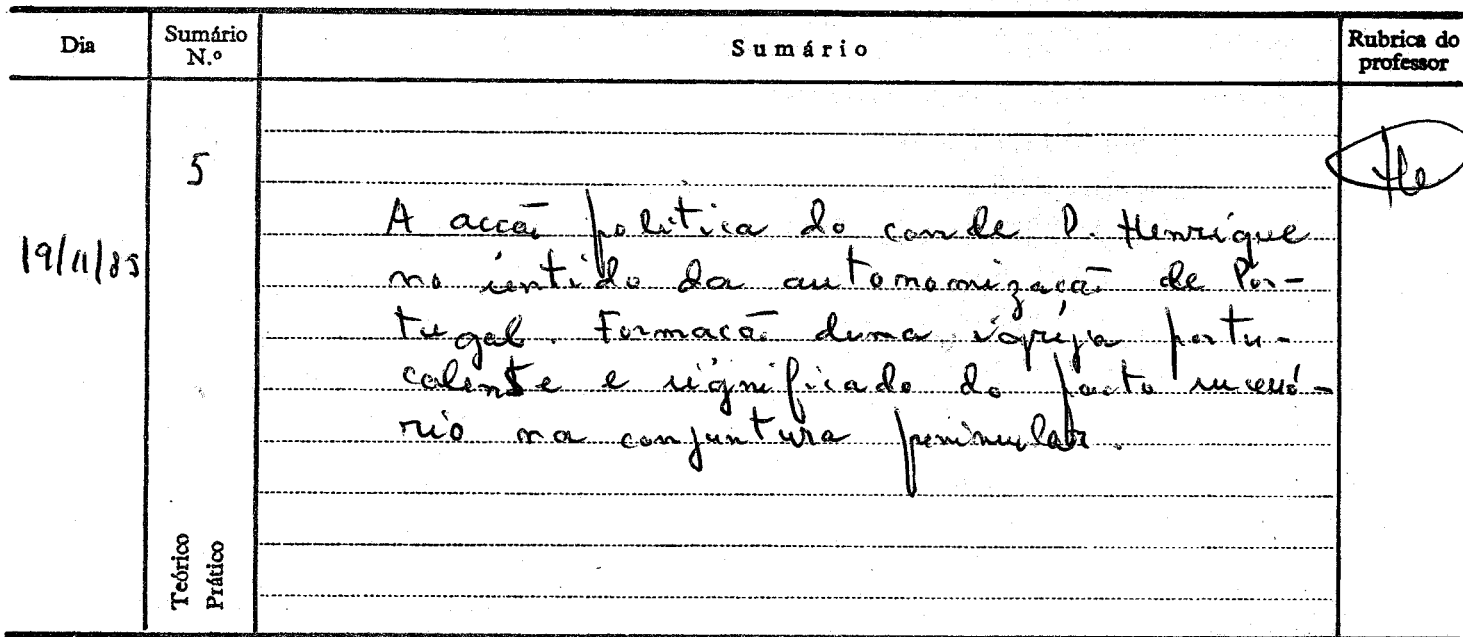 Dia
Sumário
N.º
Sumário
Rubrica do
professor
19/11/85
5
A acção política do conde D. Henrique
no sentido da autonomização de Por-
tugal. Formação duma igreja portu-
calense e significado do pacto sucessó-
rio na conjuntura peninsular.
Teórico
Prático